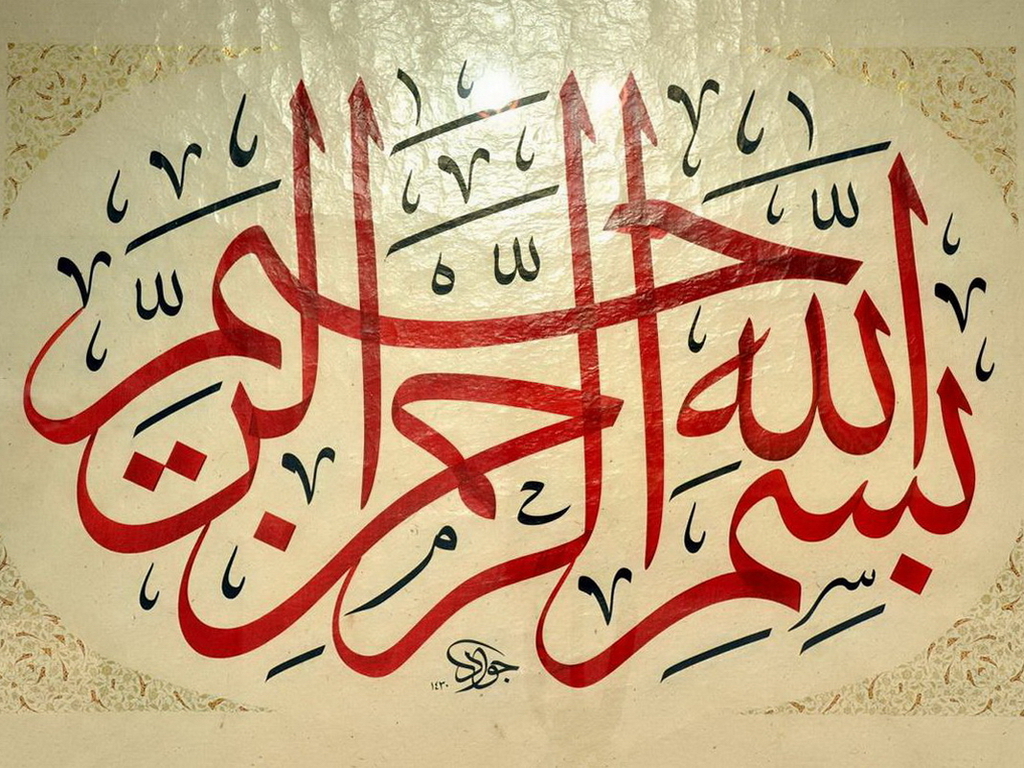 بِسْمِ اللَّهِ الرَّحْمَٰنِ الرَّحِيمِ
جواد
١٤٣٠